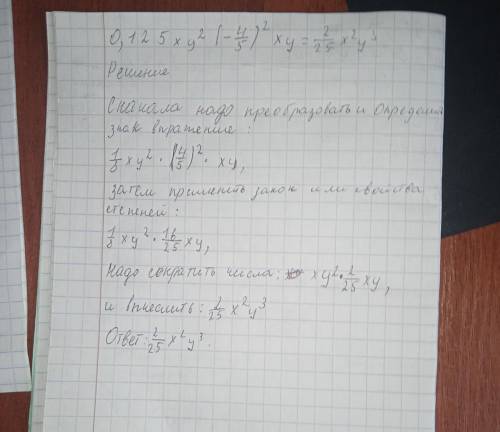 0,125xy² (-4/5)² xy = 2/25 x²y³
Решение
Сначала надо преобразовать и определить
знак впражение :
1/8 xy² · (4/5)² · xy,
затем применить закон или свойства
степеней :
1/8 xy² · 16/25 xy,
Надо сократить числа: xy² · 2/25 xy,
и вычеслить: 2/25 x²y³
Ответ: 2/25 x²y³.